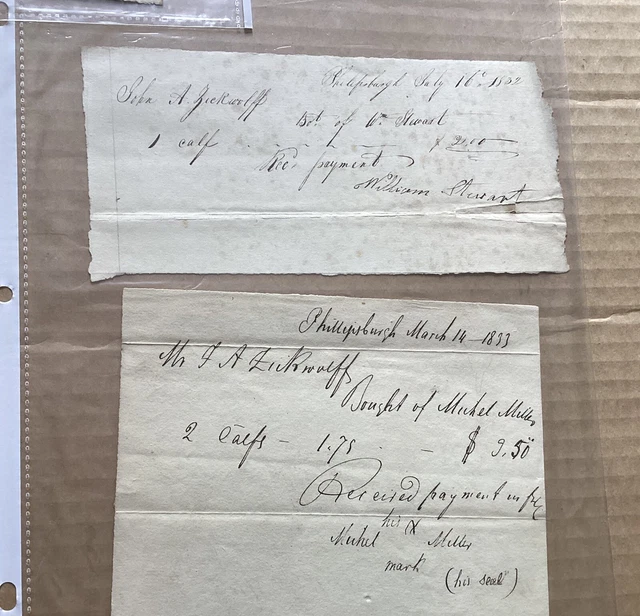 Phillipsburgh July 16th 1832
John A. Zickwolff
Bot. of Wm Stewart
1 calf - - - - $ 2.00
Rec'd payment
William Stewart
Phillipsburgh March 14 - 1833
Mr J A Zickwolff
Bought of Michel Miller
2 Calfs - 1.75 - - $ 3.50
Received payment in full
his
Michel X Miller
mark (his seal)